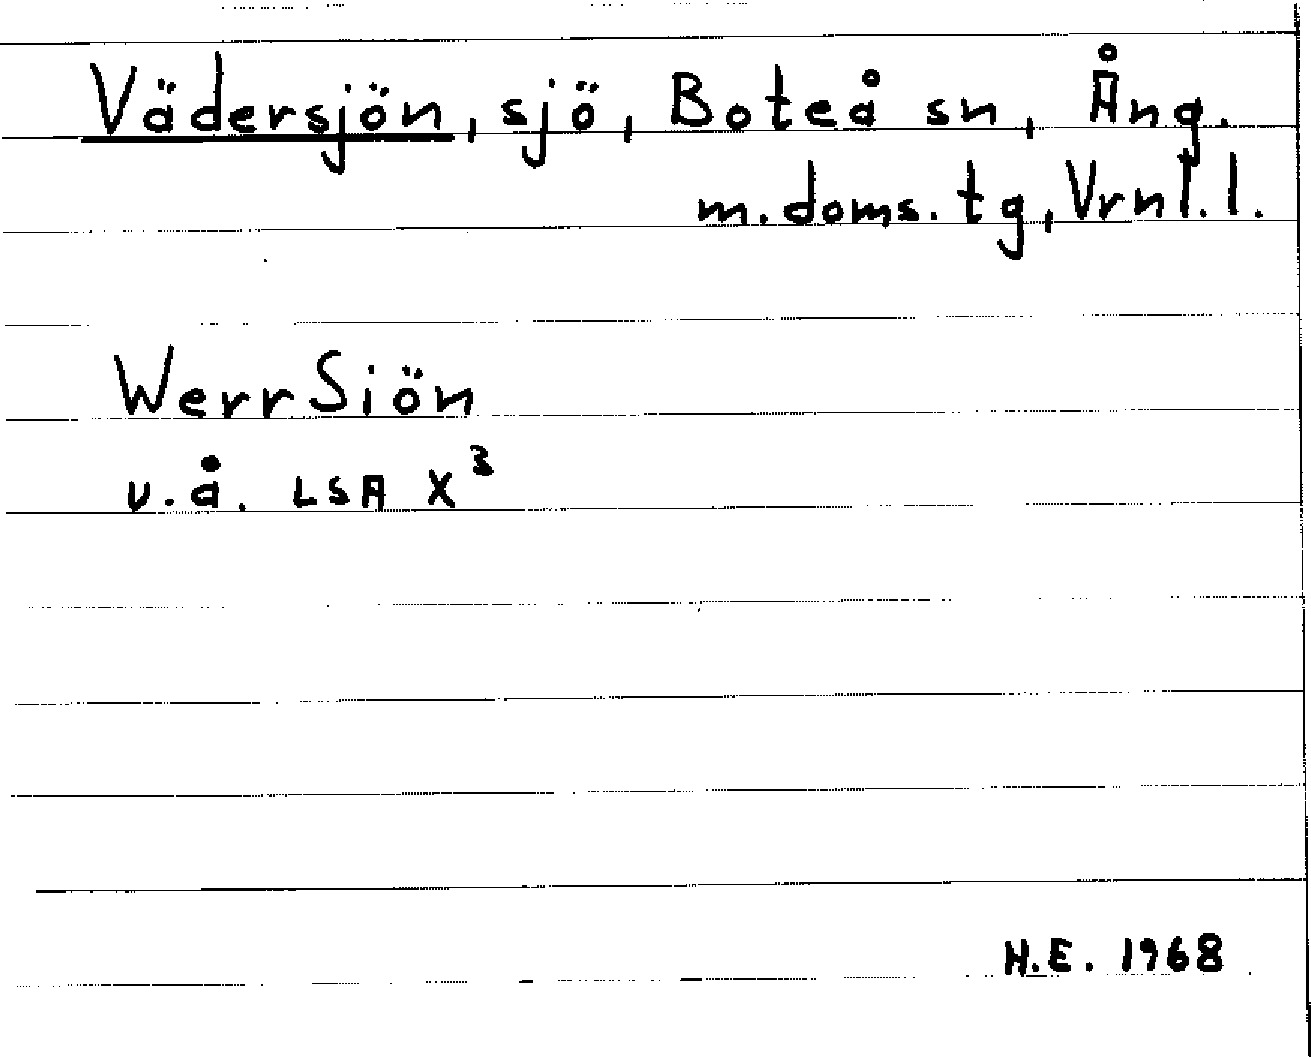 Vädersjön, sjö, Boteå sn, Ång.
m. doms. tg, Vrnl. l.
WerrSiön
u.å. LSA X³
H.E. 1968